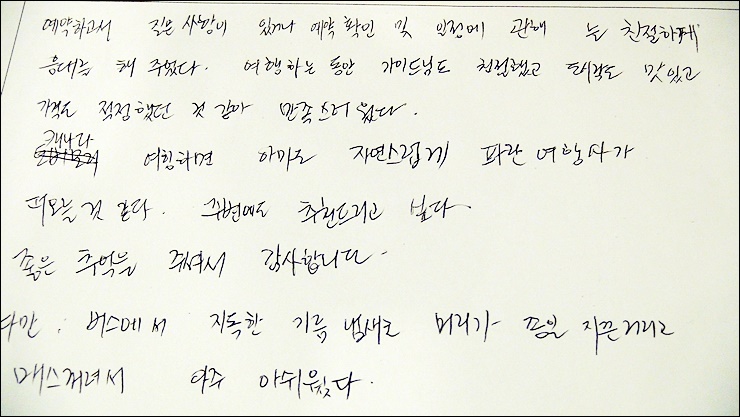 예약하고서 질문 사항이 있거나 예약 확인 및 일정에 관해 늘 친절하게
응대를 해 주었다. 여행하는 동안 가이드님도 친절했고 도시락도 맛있고
가격도 적정했던 것 같아 만족스러웠다.
캐나다
여행하면 아마도 자연스럽게 파란여행사가
떠오를 것 같다. 주변에도 추천드리고 싶다.
좋은 추억을 주셔서 감사합니다.
다만, 버스에서 지독한 기름 냄새로 머리가 종일 지끈거리고
매스꺼려서 아주 아쉬웠다.